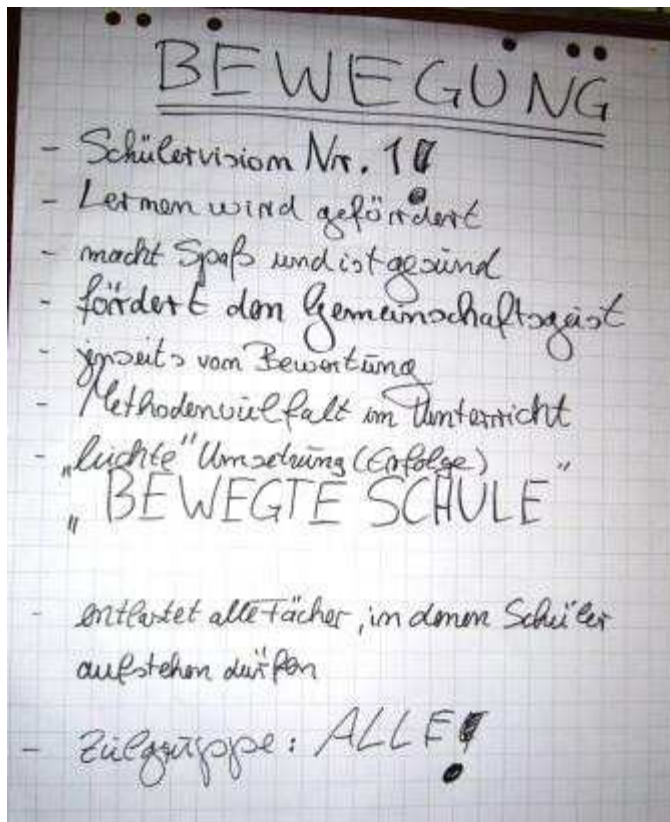 BEWEGUNG
- Schülervision Nr. 1!
- Lernen wird gefördert
- macht Spaß und ist gesund
- fördert den Gemeinschaftsgeist
- jenseits von Bewertung
- Methodenvielfalt im Unterricht
- „leichte" Umsetzung (Erfolge)
„BEWEGTE SCHULE"
- entlastet alle Fächer, in denen Schüler
aufstehen dürfen
- Zielgruppe: ALLE!